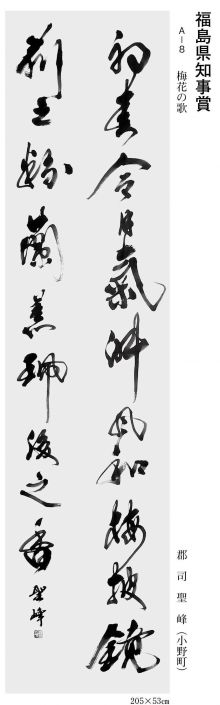 福島県知事賞
A-8 梅花の歌
郡司聖峰(小野町)
初春令月氣淑風和梅披鏡
前之粉蘭薫珮後之香 聖峰
205×53cm